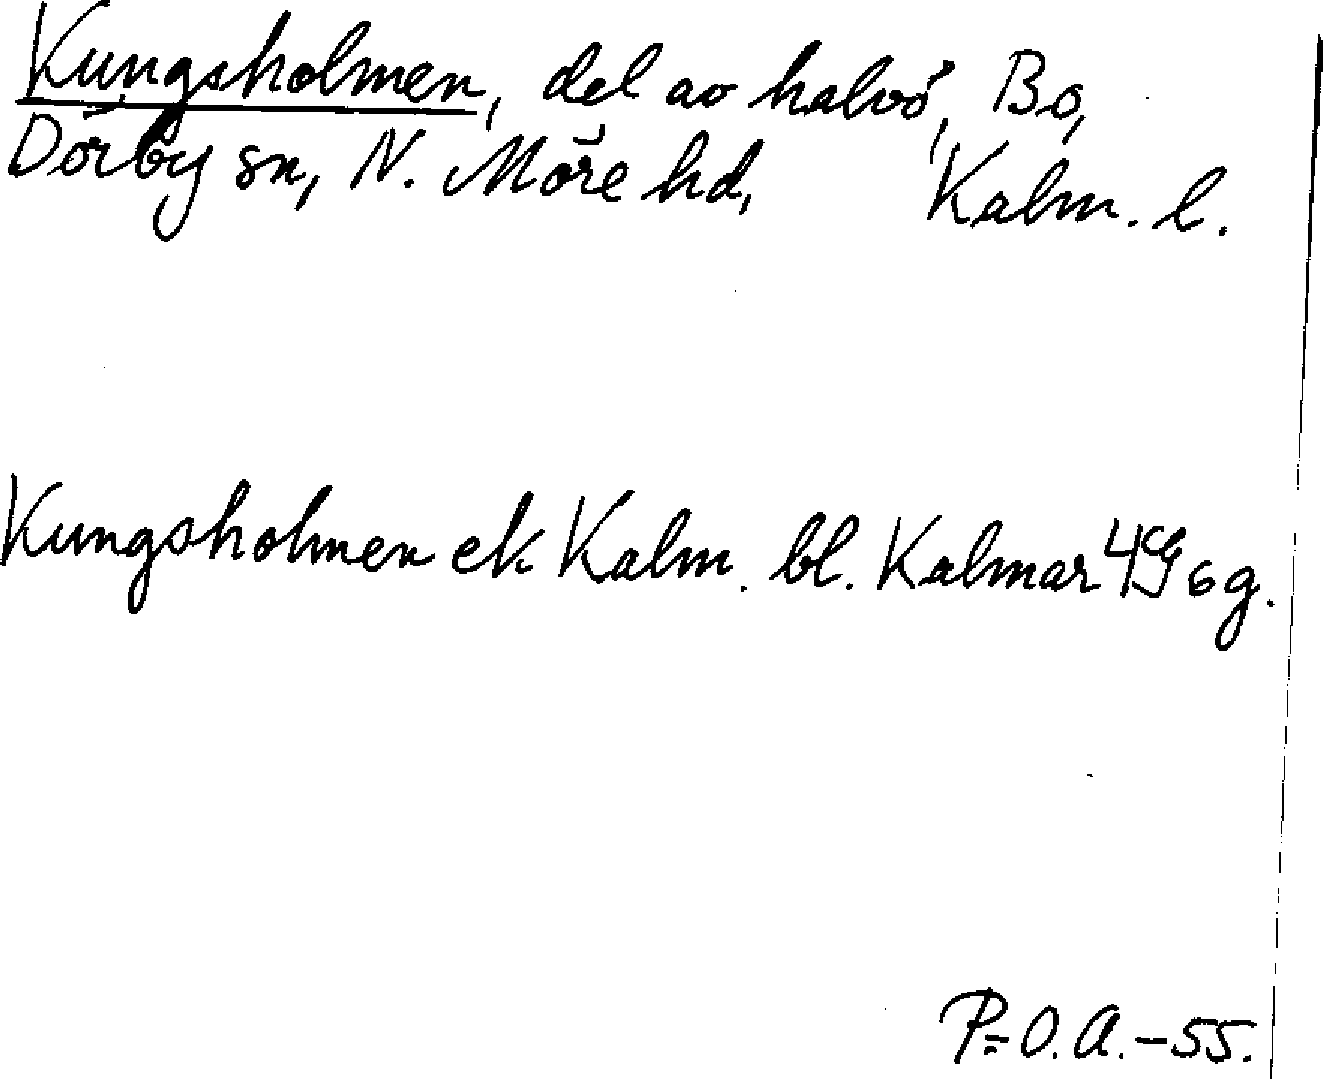 Kungsholmen, del av halvö, Bo,
Dörby sn, N. Möre hd, Kalm. l.
Kungsholmen ek Kalm. bl. Kalmar 4G 6g.
P-O.A.-55.